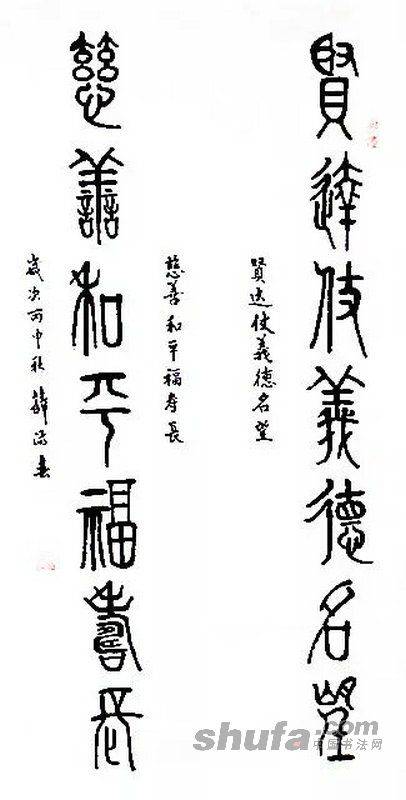 賢達仗義德名望
賢达仗義德名望
慈善和平福壽長
慈善和平福寿長
歲次丙申秋薛
shufa.com
中国书法网